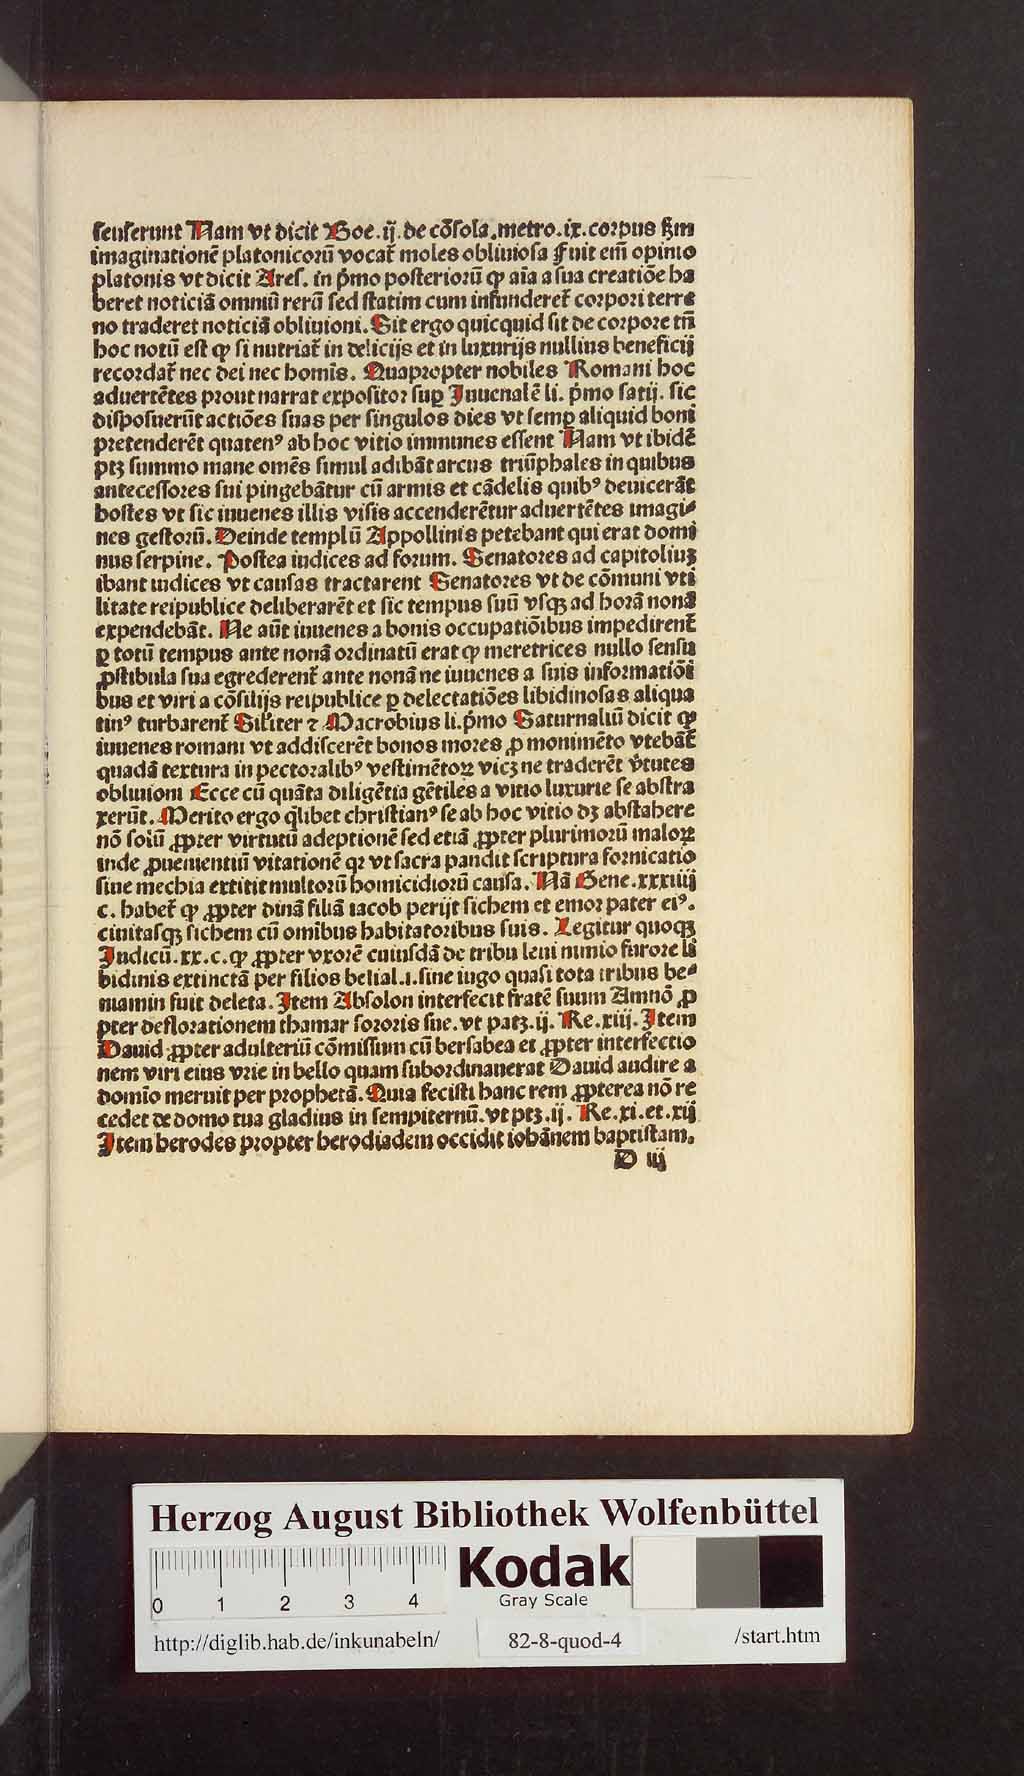 seuſerunt Nam vt dicit Boe.ij.de cõſola.metro.ix.corpus ẜm
imaginationẽ platonicorũ vocat᷑ moles obliuioſa Fuit em̃ opinio
platonis vt dicit Areſ. in p̃mo poſteriorũ ꝙ aĩa a ſua creatiõe ha
beret noticiã omniũ rerũ ſed ſtatim cum infunderet᷑ corpori terre
no traderet noticiã obliuioni. Sit ergo quicquid ſit de corpore tñ
hoc notũ eſt ꝙ ſi nutriat᷑ in delicijs et in luxurijs nullius beneficij
recordat᷑ nec dei nec homĩs. Quapropter nobiles Romani hoc
aduertẽtes prout narrat expoſitor ſuꝑ Juuenalẽ li. p̃mo ſatij. ſic
diſpoſuerũt actiões ſuas per ſingulos dies vt ſemꝑ aliquid boni
pretenderẽt quatenꝰ ab hoc vitio immunes eſſent Nam vt ibidẽ
ptꝫ ſummo mane omẽs ſimul adibãt arcus triũphales in quibus
anteceſſores ſui pingebãtur cũ armis et cãdelis quibꝰ deuicerãt
hoſtes vt ſic iuuenes illis viſis accenderẽtur aduertẽtes imagi⸗
nes geſtorũ. Deinde templũ Appollinis petebant qui erat domi
nus ſerpine. Poſtea iudices ad forum. Senatores ad capitoliuꝫ
ibant iudices vt cauſas tractarent Senatores vt de cõmuni vti
litate reipublice deliberarẽt et ſic tempus ſuũ vſqꝫ ad horã nonã
expendebãt. Ne aũt iuuenes a bonis occupatiõibus impedirent᷑
ꝑ totũ tempus ante nonã ordinatũ erat ꝙ meretrices nullo ſenſu
ꝓſtibula ſua egrederent᷑ ante nonã ne iuuenes a ſuis informatiõi
bus et viri a cõſilijs reipublice ꝑ delectatiões libidinoſas aliqua
tinꝰ turbarent᷑ Sil̃iter ⁊ Macrobius li.p̃mo Saturnaliũ dicit ꝙ
iuuenes romani vt addiſcerẽt bonos mores ꝓ monimẽto vtebãt᷑
quadã textura in pectoralibꝰ veſtimẽtoꝝ vicꝫ ne traderẽt v̾tutes
obliuioni Ecce cũ quãta diligẽtia gẽtiles a vitio luxurie ſe abſtra
xerũt. Merito ergo q̃libet chriſtianꝰ ſe ab hoc vitio dꝫ abſtahere
nõ ſolũ ꝓpter virtutũ adeptionẽ ſed etiã ꝓpter plurimorũ maloꝝ
inde ꝓuenientiũ vitationẽ qꝛ vt ſacra pandit ſcriptura fornicatio
ſiue mechia extitit multorũ homicidiorũ cauſa. Nã Gene.xxxiiij
c. habet᷑ ꝙ ꝓpter dinã filiã iacob perijt ſichem et emor pater eiꝰ.
ciuitaſqꝫ ſichem cũ omibus habitatoribus ſuis. Legitur quoqꝫ
Judicũ.xx.c.ꝙ ꝓpter vxorẽ cuiuſdã de tribu leui nimio furore li
bidinis extinctã per filios belial.i.ſine iugo quaſi tota tribus be⸗
niamin fuit deleta. Item Abſolon interfecit fratẽ ſuum Amnõ ꝓ
pter deflorationem thamar ſororis ſue. vt patꝫ.ij. Re.xiij. Item
Dauid ꝓpter adulteriũ cõmiſſium cũ berſabea et ꝓpter interfectio
nem viri eius vrie in bello quam ſubordinauerat Dauid audire a
domĩo meruit per prophetã. Quia feciſti hanc rem ꝓpterea nõ re
cedet de domo tua gladius in ſempiternũ. vt ptꝫ.ij. Re.xi.et.xij
Item herodes propter herodiadem occidit iohãnem baptiſtam.
D iij
Herzog August Bibliothek Wolfenbüttel
0 1 2 3 4
Kodak
Gray Scale
http://diglib.hab.de/inkunabeln/ 82-8-quod-4 /start.htm